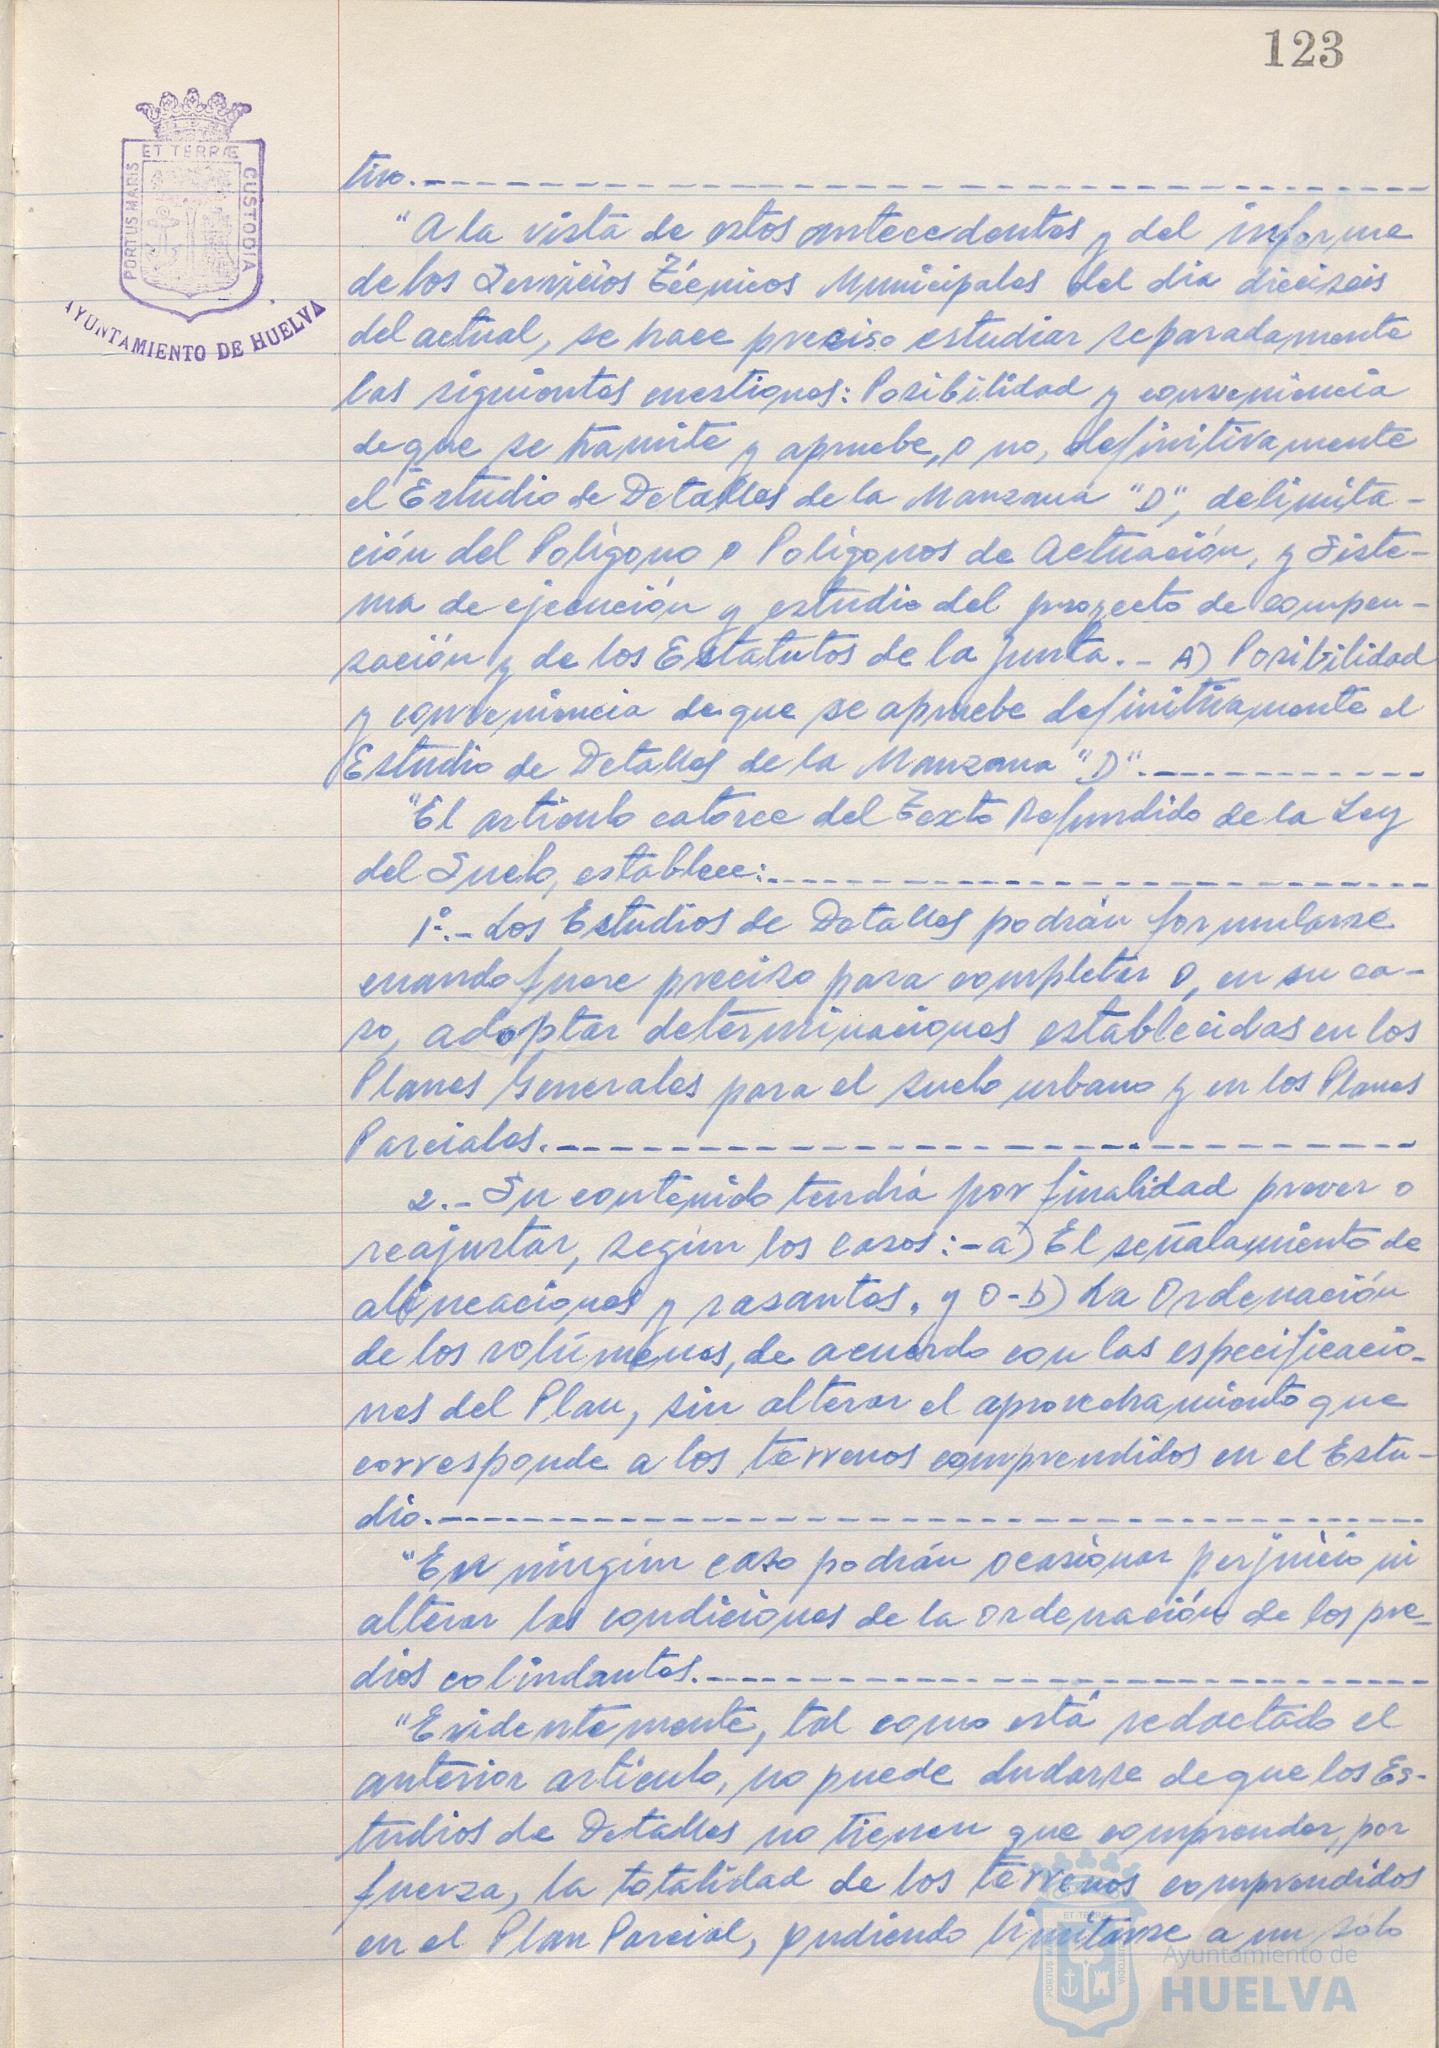 123
ET TERRÆ
PORTUS MARIS
CUSTODIA
AYUNTAMIENTO DE HUELVA
tivo.
"A la vista de estos antecedentes y del informe
de los Servicios Técnicos Municipales del dia dieciseis
del actual, se hace preciso estudiar separadamente
las siguientes cuestiones: Posibilidad y conveniencia
de que se tramite y apruebe, o no, definitivamente
el Estudio de Detalles de la Manzana "D", delimita-
ción del Polígono o Polígonos de Actuación, y Siste-
ma de ejecución y estudio del proyecto de compen-
sación y de los Estatutos de la Junta.- A) Posibilidad
y conveniencia de que se apruebe definitivamente el
Estudio de Detalles de la Manzana "D".
"El articulo catorce del Texto Refundido de la Ley
del Suelo, establece:
1º.- Los Estudios de Detalles podrán formularse
cuando fuere preciso para completar o, en su ca-
so, adoptar determinaciones establecidas en los
Planes Generales para el suelo urbano y en los Planes
Parciales.
2.- Su contenido tendrá por finalidad prever o
reajustar, según los casos:- a) El señalamiento de
alineaciones y rasantes, y o- b) La Ordenación
de los volúmenes, de acuerdo con las especificacio-
nes del Plan, sin alterar el aprovechamiento que
corresponde a los terrenos comprendidos en el Estu-
dio.
"En ningún caso podrán ocasionar perjuicio ni
alterar las condiciones de la ordenación de los pre-
dios colindantes.
"Evidentemente, tal como está redactado el
anterior articulo, no puede dudarse de que los Es-
tudios de Detalles no tienen que comprender, por
fuerza, la totalidad de los terrenos comprendidos
en el Plan Parcial, pudiendo limitarse a un sólo
Ayuntamiento de
HUELVA